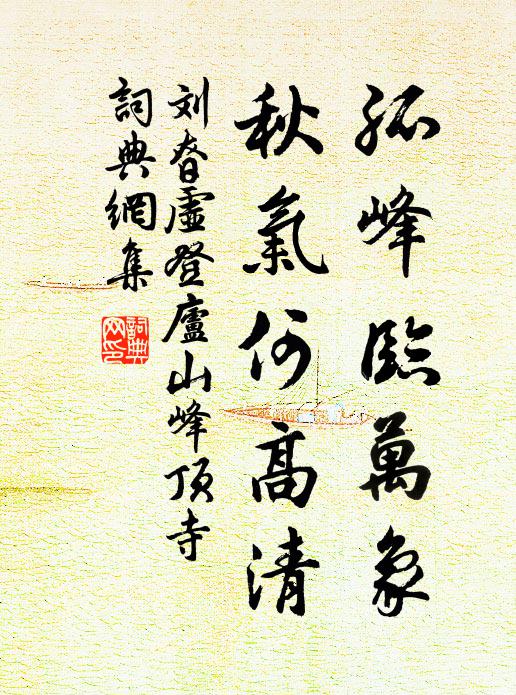 孤峰臨萬象
秋氣何高清
刘眘虛登廬山峰頂寺
詞典網集
詞典
网印